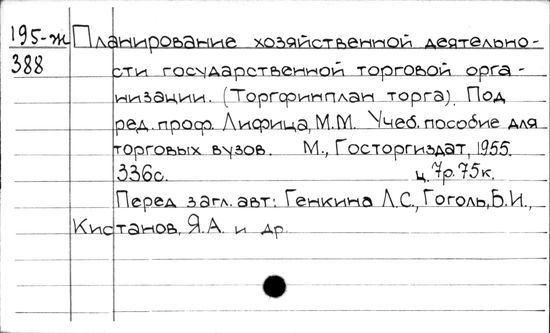 195-ж Планирование хозяйственной деятельно-
388 сти государственной торговой орга-
низации. (Торгфинплан торга). Под
ред. проф. Лифица, М.М. Учеб. пособие для
торговых вузов. М., Госторгиздат, 1955.
336с. ц. 7р. 75к.
Перед загл. авт: Генкина Л.С., Гоголь, Б.И.,
Кистанов, Я.А. и др.